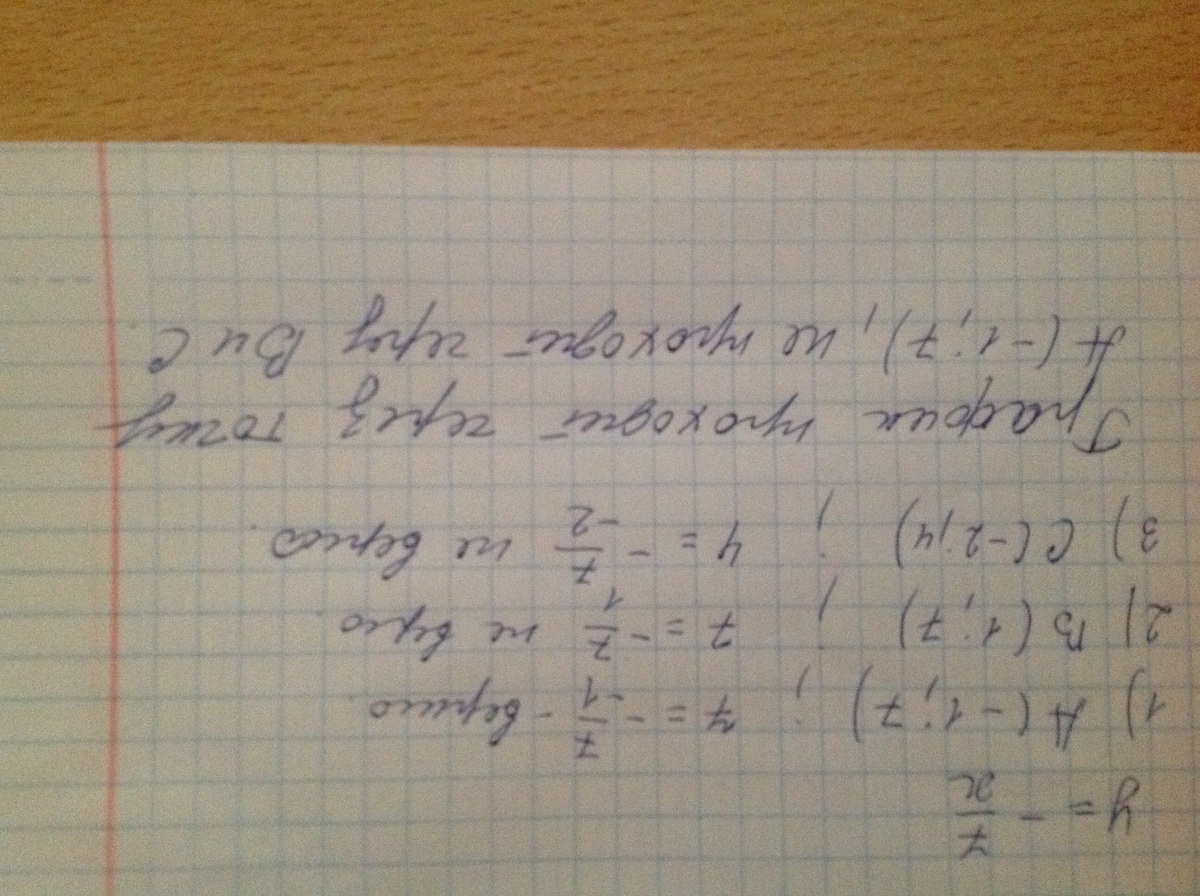 y = - 7/x
1) A (-1; 7); 7 = - 7/-1 - верно
2) B (1; 7); 7 = - 7/1 не верно
3) C (-2;4); 4 = - 7/-2 не верно.
График проходит через точку
A (-1; 7), не проходит через B и C.